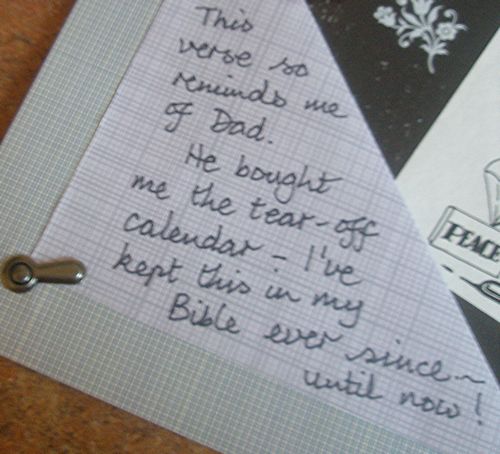 This
verse so
reminds me
of Dad.
He bought
me the tear-off
calendar - I've
kept this in my
Bible ever since -
until now!
PEACE